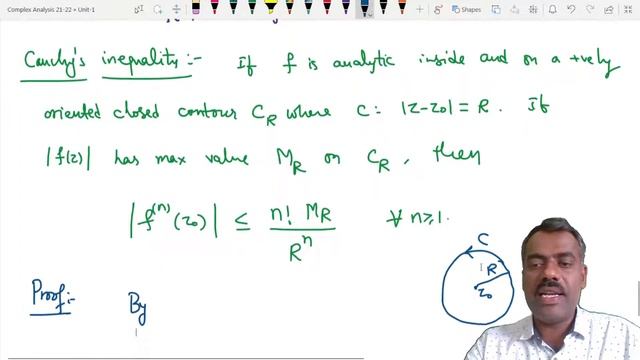 Complex Analysis 21-22 » Unit-1
Shapes
Cauchy's inequality:- If f is analytic inside and on a +vely
oriented closed contour C_R where C: |z-z0| = R. If
|f(z)| has max value M_R on C_R, then
|f^(n)(z0)| ≤ n! M_R / R^n ∀ n≥1.
C
R
z0
Proof:-
By